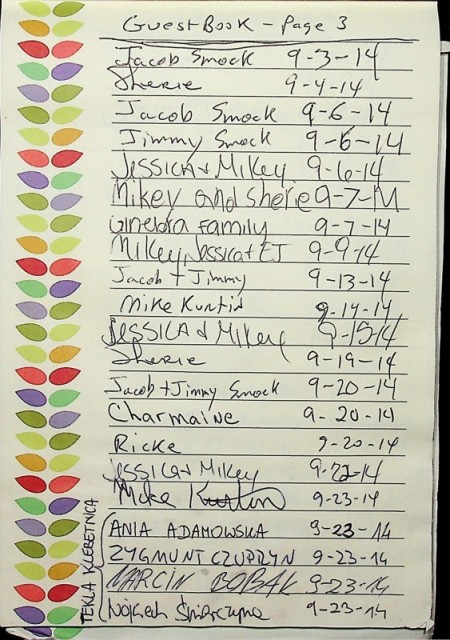 GuestBook - Page 3
Jacob Smock 9-3-14
Sherie 9-4-14
Jacob Smock 9-6-14
Jimmy Smock 9-6-14
Jessica + Mikey 9-6-14
Mikey and Sherie 9-7-14
Ginebra Family 9-7-14
Mikey, Jessica + EJ 9-9-14
Jacob + Jimmy 9-13-14
Mike Kurtin 9-14-14
Jessica & Mikey 9-15-14
Sherie 9-19-14
Jacob + Jimmy Smock 9-20-14
Charmaine 9-20-14
Ricke 9-20-14
Jessica + Mikey 9-22-14
Mike Kurtin 9-23-14
TEKLA KLEBETNICA
ANIA ADAMOWSKA 9-23-14
ZYGMUNT CZUPRYN 9-23-14
MARCIN BOBAK 9-23-14
Wojciech 9-23-14